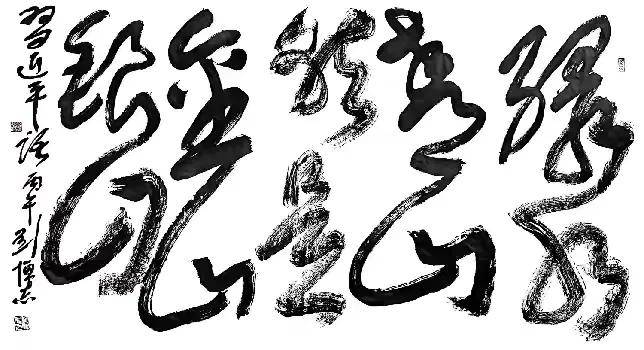 绿水
青山
就是
金山
银山
習近平语 丙午 刘